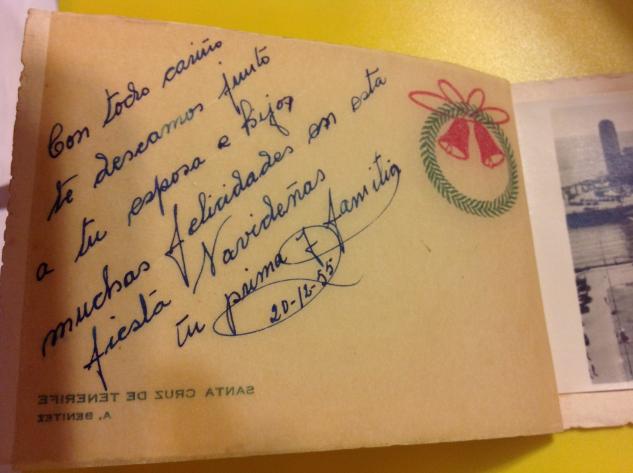 Con todo cariño
te deseamos junto
a tu esposa e hijos
muchas felicidades en esta
fiesta Navideñas
tu prima y familia
20-12-55
SANTA CRUZ DE TENERIFE
A. BENITEZ